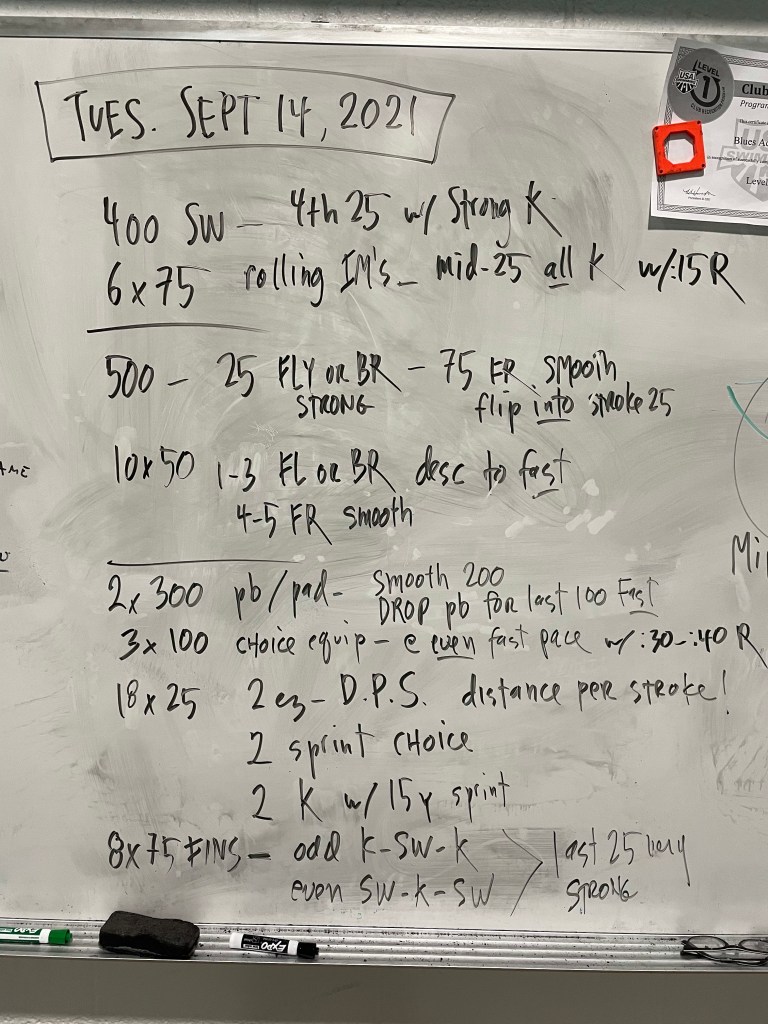 TUES. SEPT 14, 2021
LEVEL
USA
1
CLUB RECOGNITION
Club
Program
Blues A
Level
400 SW - 4th 25 w/ Strong K
6x75 rolling IM's - mid-25 all K w/:15R
500 - 25 FLY OR BR - 75 FR smooth
STRONG flip into stroke 25
10x50 1-3 FL OR BR desc to fast
4-5 FR smooth
2x300 pb/pad- smooth 200
DROP pb for last 100 Fast
3x100 CHOICE equip - @ even fast pace w/:30-:40 R
18x25 2 ez - D.P.S. distance per stroke!
2 sprint CHOICE
2 K w/ 15y sprint
8x75 FINS - odd K-SW-K
even SW-K-SW
last 25 very
STRONG
AME
Mi
EXPO